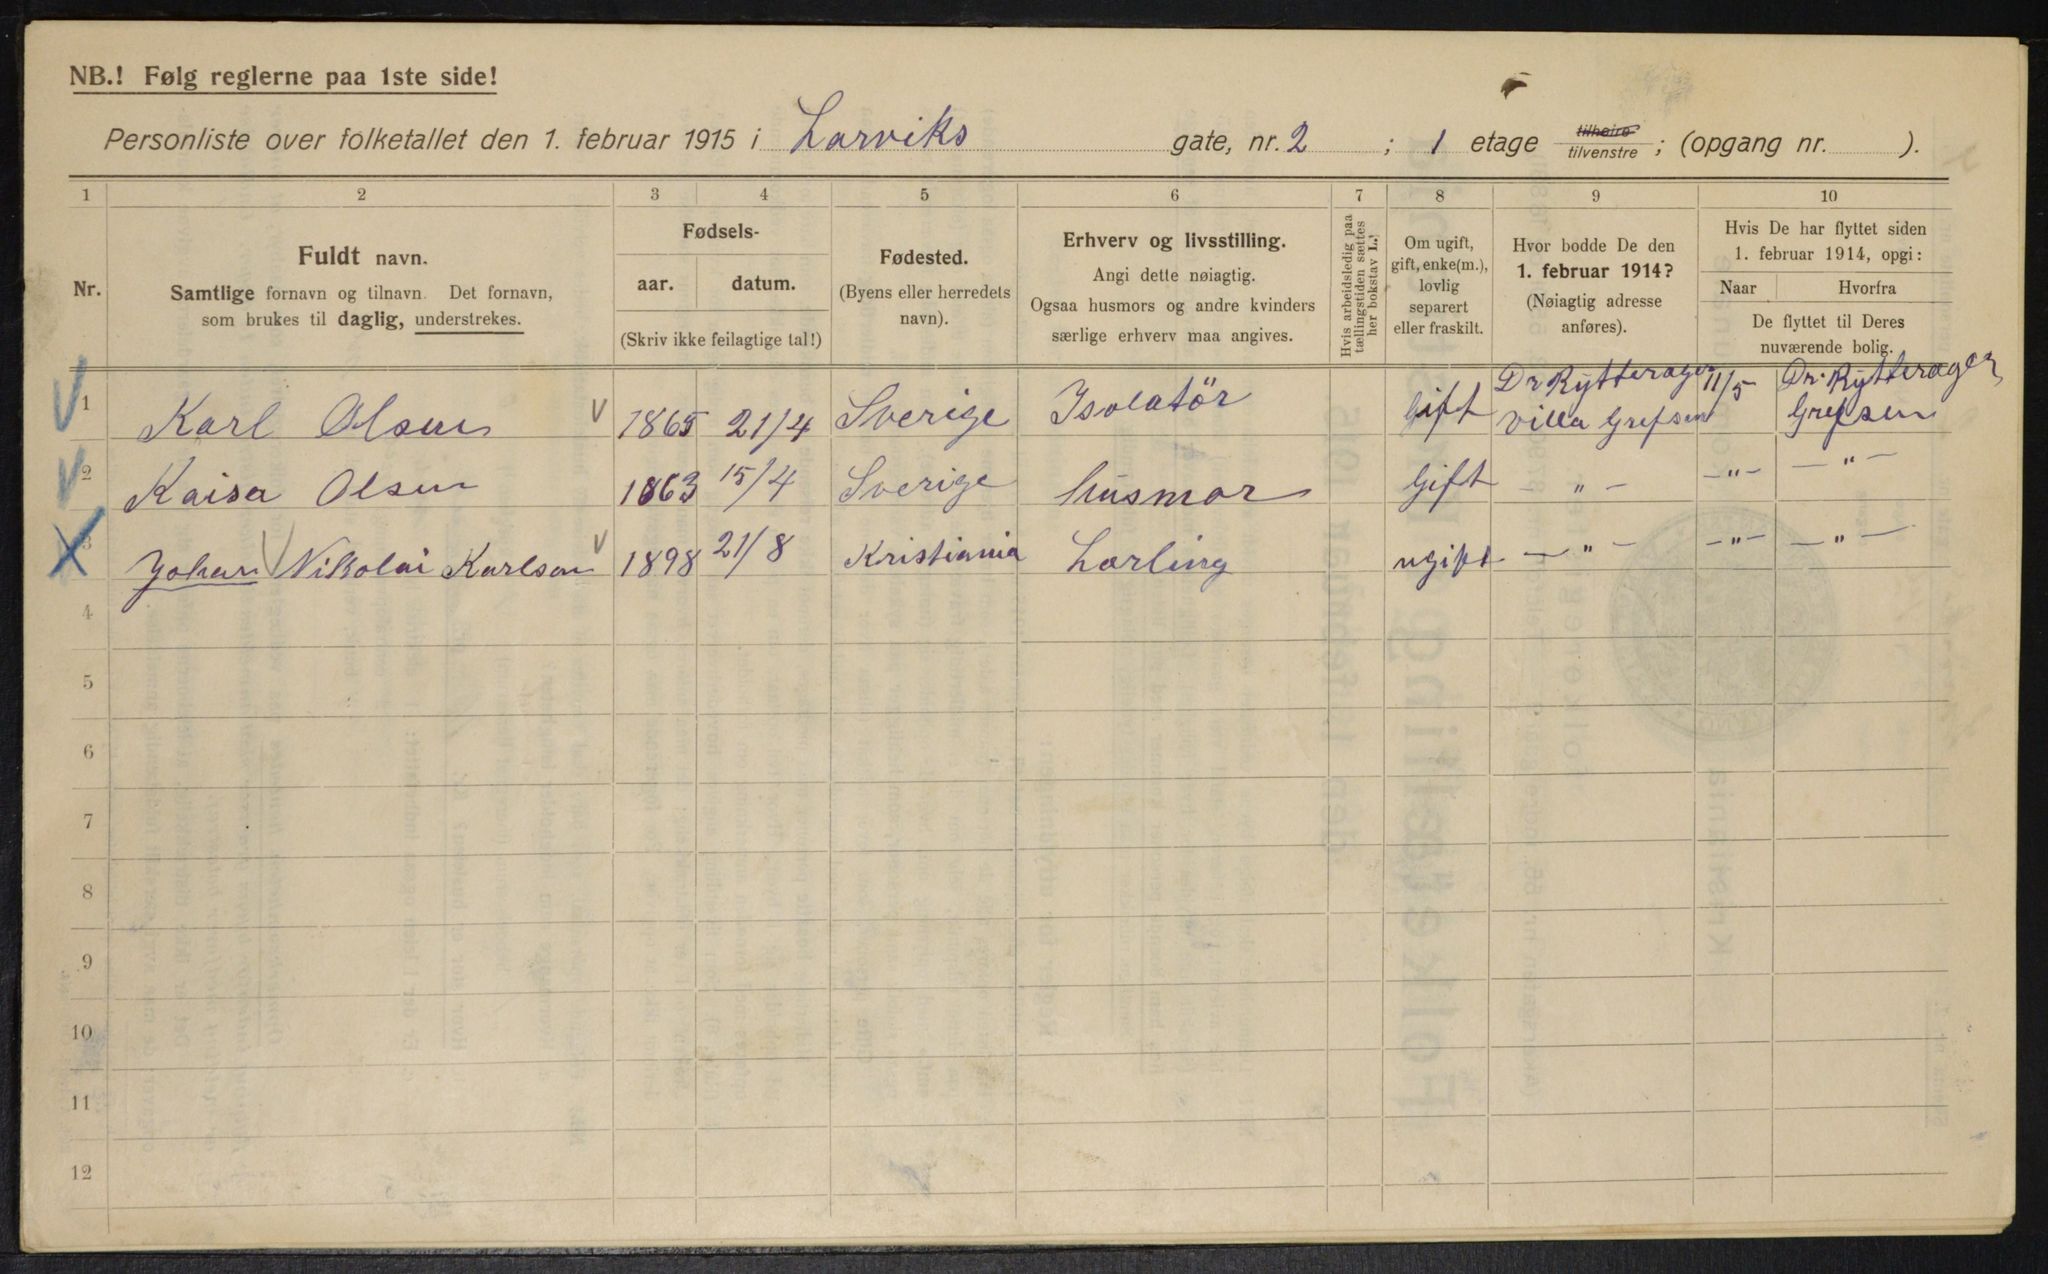 NB.! Følg reglerne paa 1ste side!
Personliste over folketallet den 1. februar 1915 i Larviks gate, nr. 2 ; 1 etage tilhøire tilvenstre ; (opgang nr. ).
1 2 3 4 5 6 7 8 9 10
Nr.
Fuldt navn.
Samtlige fornavn og tilnavn. Det fornavn,
som brukes til daglig, understrekes.
Fødsels-
aar. datum.
(Skriv ikke feilagtige tal!)
Fødested.
(Byens eller herredets
navn).
Erhverv og livsstilling.
Angi dette nøiagtig.
Ogsaa husmors og andre kvinders
særlige erhverv maa angives.
Hvis arbeidsledig paa
tællingstiden sættes
her bokstav L.
Om ugift,
gift, enke(m.),
lovlig
separert
eller fraskilt.
Hvor bodde De den
1. februar 1914?
(Nøiagtig adresse
anføres).
Hvis De har flyttet siden
1. februar 1914, opgi:
Naar Hvorfra
De flyttet til Deres
nuværende bolig.
1 Karl Olsen 1865 21/4 Sverige Isolatör Gift Dr Rytterager Villa Grefsen 11/5 Dr. Rytterager Grefsen
2 Kaisa Olsen 1863 15/4 Sverige husmor Gift " — — " — — " —
3 Johan Nikolai Karlsen 1898 21/8 Kristiania Lærling ugift — " — — " — — " —
4
5
6
7
8
9
10
11
12